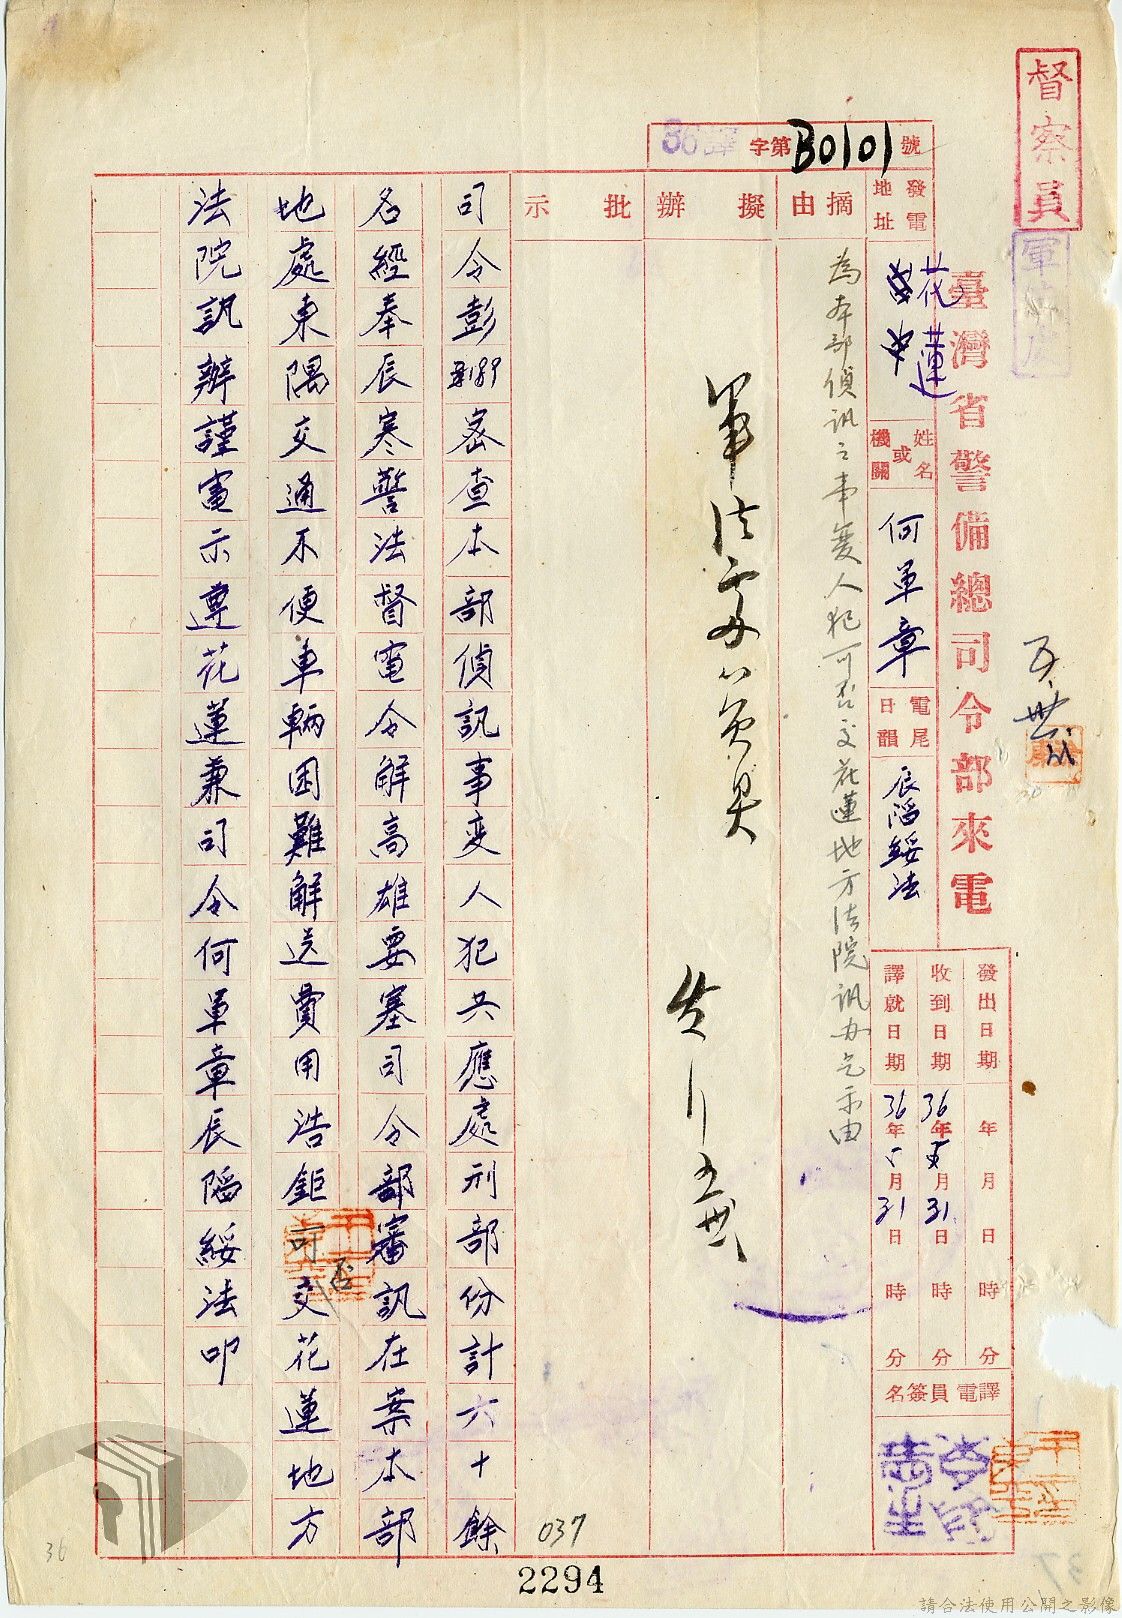 督察員
臺灣省警備總司令部來電
36譯字第B0101號
發電地址
花蓮
姓名或機關
何軍章
電尾日韻
辰滔綏法
發出日期 年 月 日 時 分
收到日期 36年5月31日 時 分
譯就日期 36年5月31日 時 分
譯電員簽名
摘由
為本部偵訊之事變人犯可否交花蓮地方法院訊办乞示由
擬辦
軍法處
批示
司令彭 密查本部偵訊事变人犯共應處刑部份計六十餘
名經奉辰寒警法督電令解高雄要塞司令部審訊在案本部
地處東隅交通不便車輛困難解送費用浩鉅可否交花蓮地方
法院訊辦謹電示遵花蓮兼司令何軍章辰滔綏法叩
037
2294
36
37
請合法使用公開之影像